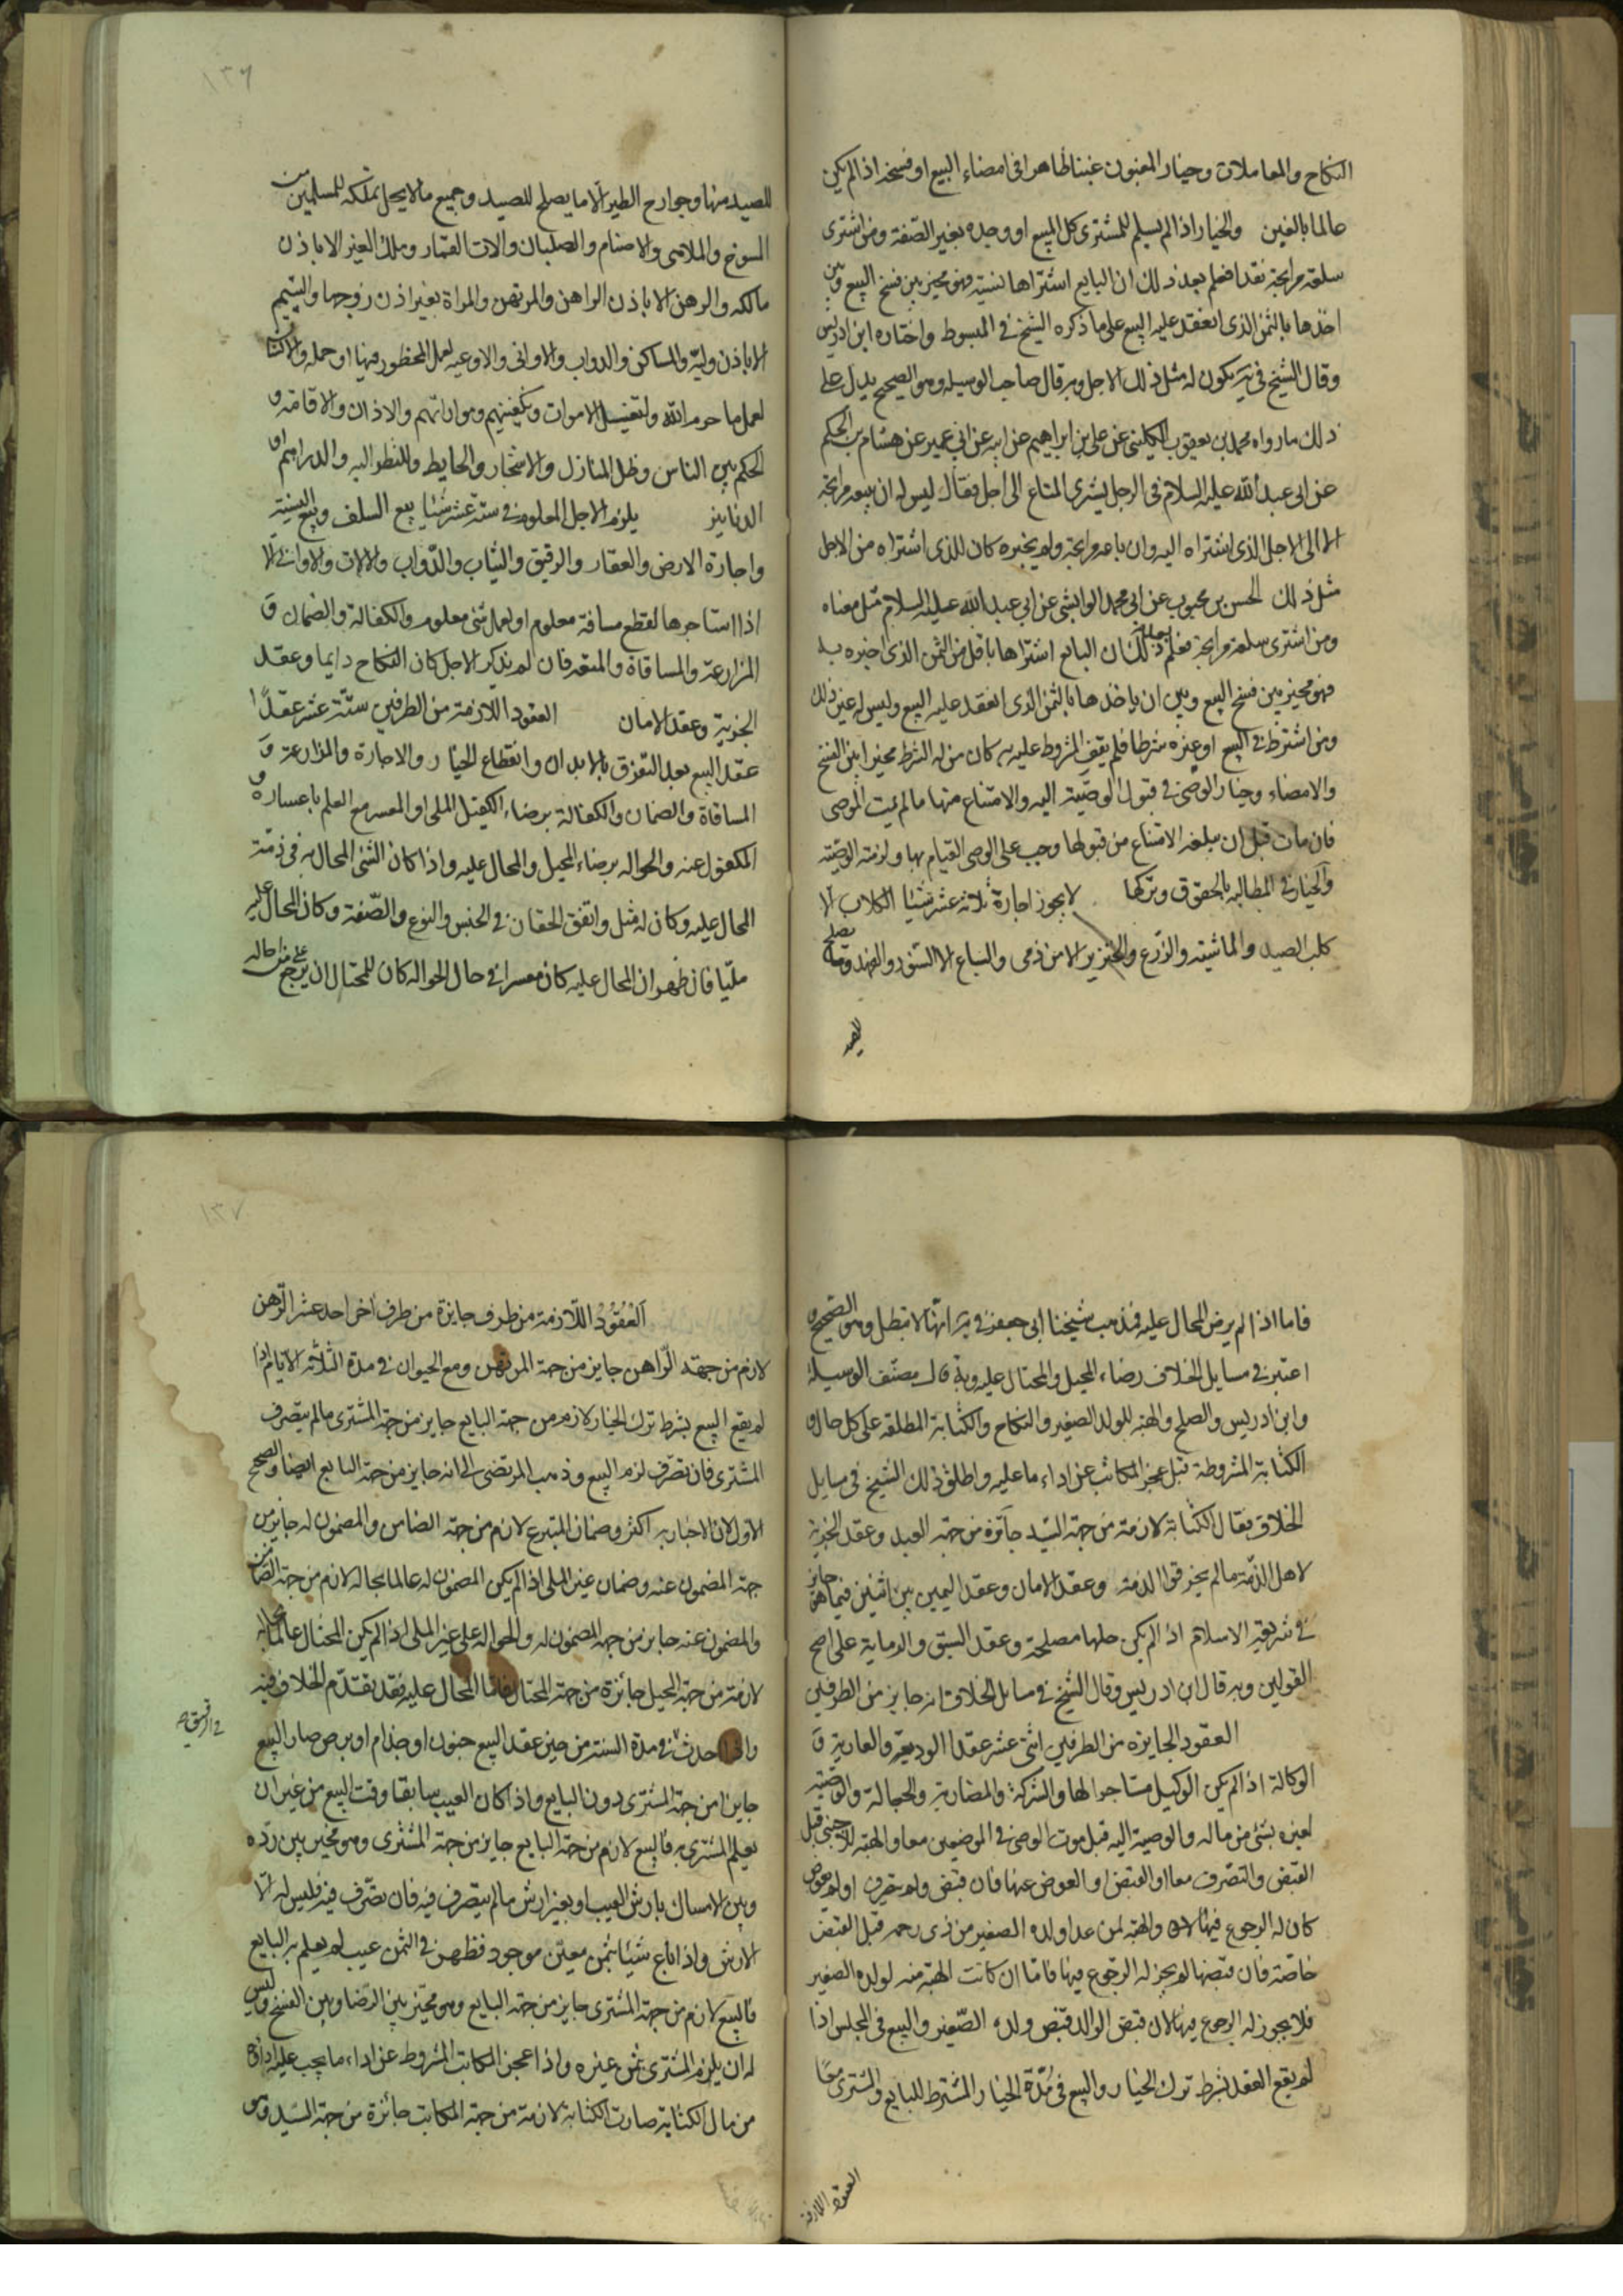 النكاح والمعاملات وخيار المغبون غبنا ظاهرا في امضاء البيع او فسخه اذا لم يكن
عالما بالغبن والخيار اذا لم يسلم للمشترى كل المبيع او وجده بغير الصفة ومن اشترى
سلعة مرابحة نقدا فعلم بعد ذلك ان البايع اشتراها نسية فهو مخير بين فسخ البيع وبين
اخذها بالثمن الذى انعقد عليه البيع على ما ذكره الشيخ في المبسوط واختاره ابن ادريس
وقال الشيخ في يه يكون له مثل ذلك الاجل وبه قال صاحب الوسيله وهو الصحيح يدل على
ذلك ما رواه محمد بن يعقوب الكلينى عن على بن ابراهيم عن ابيه عن ابي عمير عن هشام بن الحكم
عن ابى عبد الله عليه السلام في الرجل يشترى المتاع الى اجل فقال ليس له ان يبيعه مرابحة
الا الى الاجل الذى اشتراه اليه وان باعه مرابحة ولم يخبره كان للذى اشتراه من الاجل
مثل ذلك الحسن بن محبوب عن ابى محمد الوابشى عن ابى عبد الله عليه السلام مثل معناه
ومن اشترى سلعة مرابحة فعلم بعد ذلك ان البايع اشتراها باقل من الثمن الذى اخبره به
فهو مخير بين فسخ البيع وبين ان ياخذها بالثمن الذى انعقد عليه البيع وليس له غير ذلك
ومن اشترط في البيع او غيره شرطا فلم يف المشروط عليه به كان من له الشرط مخيرا بين الفسخ
والامضاء وخيار الوصى في قبول الوصية اليه والامتناع منها ما لم يمت الموصى
فان مات قبل ان يبلغه الامتناع من قبولها وجب على الوصى القيام بها ولزمته الوصية
والخيار في المطالبه بالحقوق وتركها لا يجوز اجارة ثلاثة عشر شيئا الكلاب الا
كلب الصيد والماشية والزرع والخنزير الا من ذمى والسباع الا السنور والفهد وما يصلح
للصيد
١٣٦
للصيد منها وجوارح الطير الا ما يصلح للصيد وجميع ما لا يحل تملكه للمسلمين من
المسوخ والملاهى والاصنام والصلبان والات القمار وملك الغير الا باذن
مالكه والرهن الا باذن الراهن والمرتهن والمراة بغير اذن زوجها واليتيم
الا باذن وليه والمساكن والدواب والاوانى والاوعيه لعمل المحظور فيها او حمله والانسان
لعمل ما حرم الله ولتغسيل الاموات وتكفينهم ومواراتهم والاذان والاقامة و
الحكم بين الناس وظل المنازل والاشجار والحايط والنظر اليه والدراهم و
الدنانير يلزم الاجل المعلوم في ستة عشر شيئا بيع السلف وبيع النسية
واجارة الارض والعقار والرقيق والثياب والدواب والالات والاوانى الا
اذا استاجرها لقطع مسافة معلوم او لعمل شئ معلوم والكفالة والضمان و
المزارعة والمساقاة والمتعه فان لم يذكر الاجل كان النكاح دايما وعقد
الجزية وعقد الامان العقود اللازمة من الطرفين ستة عشر عقدا
عقد البيع بعد التفرق بالابدان وانقطاع الخيار والاجارة والمزارعة و
المساقاة والضمان والكفالة برضاء الكفيل الملى او المعسر مع العلم باعساره و
المكفول عنه والحواله برضاء المحيل والمحال عليه واذا كان الشئ المحال به في ذمة
المحال عليه وكان له مثل واتفق الحقان في الجنس والنوع والصفة وكان المحال عليه
مليا فان ظهر ان المحال عليه كان معسرا في حال الحواله كان للمحتال ان يرجع على من احاله
فاما اذا لم يرض المحال عليه فمذهب شيخنا ابى جعفر في يه انها لا تبطل وهو الصحيح و
اعتبر في مسايل الخلاف رضاء المحيل والمحتال عليه وبه قال مصنف الوسيلة
وابن ادريس والصلح والهبة للولد الصغير والنكاح والكتابة المطلقة على كل حال و
الكتابة المشروطة قبل عجز المكاتب عن اداء ما عليه واطلق ذلك الشيخ في مسايل
الخلاف فقال الكتابة لازمة من جهة السيد جائزة من جهة العبد وعقد الجزية
لاهل الذمة ما لم يخرقوا الذمة وعقد الامان وعقد اليمين بين اثنين فيما هو جايز
في شريعة الاسلام اذا لم يكن حلها مصلحة وعقد السبق والرماية على اصح
القولين وبه قال ابن ادريس وقال الشيخ في مسائل الخلاف انه جايز من الطرفين
العقود الجايزه من الطرفين اثنى عشر عقدا الوديعة والعارية و
الوكالة اذا لم يكن الوكيل مستاجرا لها والشركة والمضاربة والجعالة والوصية
لغيره بشئ من ماله والوصية اليه قبل موت الموصى في الموضعين معا والهبة للاجنبى قبل
القبض والتصرف معا او القبض او العوض عنها فان قبض ولم يتصرف او لم يعوض
كان له الرجوع فيها والهبة لمن عدا ولده الصغير من ذى رحمه قبل القبض
خاصة فان قبضها لم يجز له الرجوع فيها فاما ان كانت الهبة منه لولده الصغير
فلا يجوز له الرجوع فيها لان قبض الوالد قبض ولده الصغير والبيع في المجلس اذا
لم يقع العقد بشرط ترك الخيار والبيع في مدة الخيار المشترط للبايع والمشترى معا
العقود اللازمة
١٣٧
العقود اللازمة من طرف جايزة من طرف اخر احد عشر الرهن
لازم من جهة الراهن جايز من جهة المرتهن ومع الحيوان في مدة الثلثة الايام اذا
لم يقع البيع بشرط ترك الخيار لازم من جهة البايع جايز من جهة المشترى ما لم يتصرف
المشترى فان تصرف لزم البيع وذهب المرتضى الى انه جايز من جهة البايع ايضا والصحيح
الاول لان الاخبار به اكثر وضمان المتبرع لازم من جهة الضامن والمضمون له جايز من
جهة المضمون عنه وضمان غير الملى اذا لم يكن المضمون له عالما بحاله لازم من جهة الضامن
والمضمون عنه جايز من جهة المضمون له والحواله على غير الملى اذا لم يكن المحتال عالما بحاله
لازمة من جهة المحيل جائزة من جهة المحتال فاما المحال عليه فقد تقدم الخلاف فيه
واذا حدث في مدة السنة من حين عقد البيع جنون او جذام او برص صار البيع
في الرقيق صح
جايزا من جهة المشترى دون البايع واذا كان العيب سابقا وقت البيع من غير ان
يعلم المشترى به فالبيع لازم من جهة البايع جايز من جهة المشترى وهو مخير بين رده
وبين الامساك بارش العيب او بغير ارش ما لم يتصرف فيه فان تصرف فيه فليس له الا
الارش واذا باع شيئا بثمن معين موجود فظهر في الثمن عيب لم يعلم به البايع
فالبيع لازم من جهة المشترى جايز من جهة البايع وهو مخير بين الرضا وبين الفسخ وليس
له ان يلزم المشترى ثمن غيره واذا عجز المكاتب المشروط عن اداء ما يجب عليه اداؤه
من مال الكتابة صارت الكتابة لازمة من جهة المكاتب جائزة من جهة السيد ومن